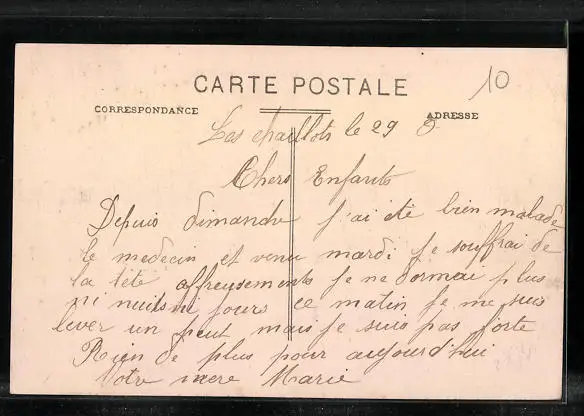 10
CARTE POSTALE
CORRESPONDANCE
ADRESSE
Les chaillots le 29 8
Chers Enfants
Depuis dimanche j'ai été bien malade
le medecin et venu mardi je souffrai de
la tété affreusements je ne dormai plus
ni nuits ni jours ce matin je me suis
lever un peut mais je suis pas forte
Rien de plus pour aujourd'hui
Votre mere Marie